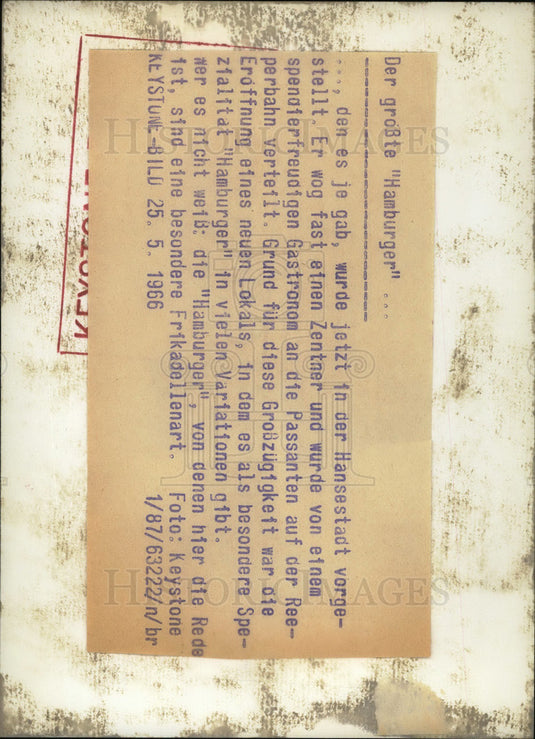 Der größte "Hamburger" ...
..., den es je gab, wurde jetzt in der Hansestadt vorge-
stellt. Er wog fast einen Zentner und wurde von einem
spendierfreudigen Gastronom an die Passanten auf der Ree-
perbahn verteilt. Grund für diese Großzügigkeit war die
Eröffnung eines neuen Lokals, in dem es als besondere Spe-
zialität "Hamburger" in vielen Variationen gibt.
Wer es nicht weiß: die "Hamburger", von denen hier die Rede
ist, sind eine besondere Frikadellenart. Foto: Keystone
KEYSTONE-BILD 25. 5. 1966 1/87/63222/n/br
KEYSTONE
HISTORIC IMAGES
HISTORIC IMAGES